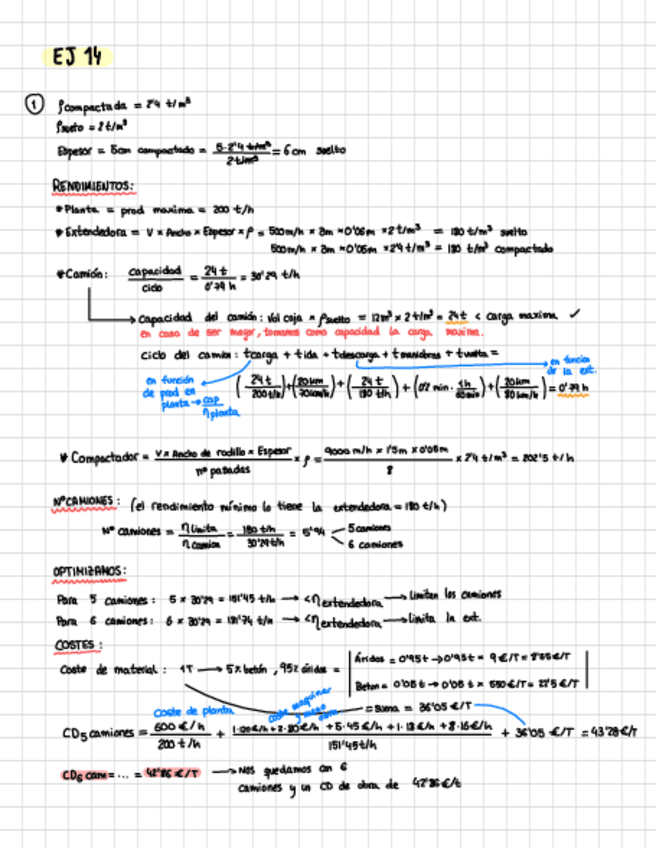 EJ 14
① ρcompactada = 2'4 t/m³
ρsuelto = 2 t/m³
Espesor = 5cm compactado = 5·2'4 t/m³ / 2 t/m³ = 6 cm suelto
RENDIMIENTOS:
* Planta = prod maxima = 200 t/h
* Extendedora = V × Ancho × Espesor × ρ = 500m/h × 3m × 0'06m × 2 t/m³ = 180 t/m³ suelto
500m/h × 3m × 0'05m × 2'4 t/m³ = 180 t/m³ compactado
* Camión: capacidad / ciclo = 24 t / 0'79 h = 30'29 t/h
→ capacidad del camión: Vol caja × ρsuelto = 12m³ × 2 t/m³ = 24t < carga maxima ✓
en caso de ser mayor, tomamos como capacidad la carga maxima.
ciclo del camión: tcarga + tida + tdescarga + tmaniobras + tvuelta =
en función de la ext.
en función de prod en planta → cap / ηplanta
(24 t / 200 t/h) + (20 km / 70 km/h) + (24 t / 180 t/h) + (0'2 min · 1h / 60min) + (20km / 80 km/h) = 0'79 h
* Compactador = V × Ancho de rodillo × Espesor / nº pasadas × ρ = 9000 m/h × 1'5m × 0'05m / 8 × 2'4 t/m³ = 202'5 t/h
Nº CAMIONES: (el rendimiento mínimo lo tiene la extendedora = 180 t/h)
Nº camiones = η limita / η camion = 180 t/h / 30'29 t/h = 5'94 < 5 camiones
6 camiones
OPTIMIZAMOS:
Para 5 camiones: 5 × 30'29 = 151'45 t/h → < η extendedora → limitan los camiones
Para 6 camiones: 6 × 30'29 = 181'74 t/h → < η extendedora → limita la ext.
COSTES:
Coste de material: 1T → 5% betún, 95% áridos =
Áridos = 0'95t → 0'95t × 9 €/T = 8'55 €/T
Betun = 0'05t → 0'05t × 550 €/T = 27'5 €/T
= Suma = 36'05 €/T
Coste de planta
coste maquinar
CD5 camiones = 600 €/h / 200 t/h + / 151'45 t/h + 36'05 €/T = 43'28 €/T
CD6 cam = ... = 42'86 €/T → Nos quedamos con 6
camiones y un CD de obra de 42'86 €/t